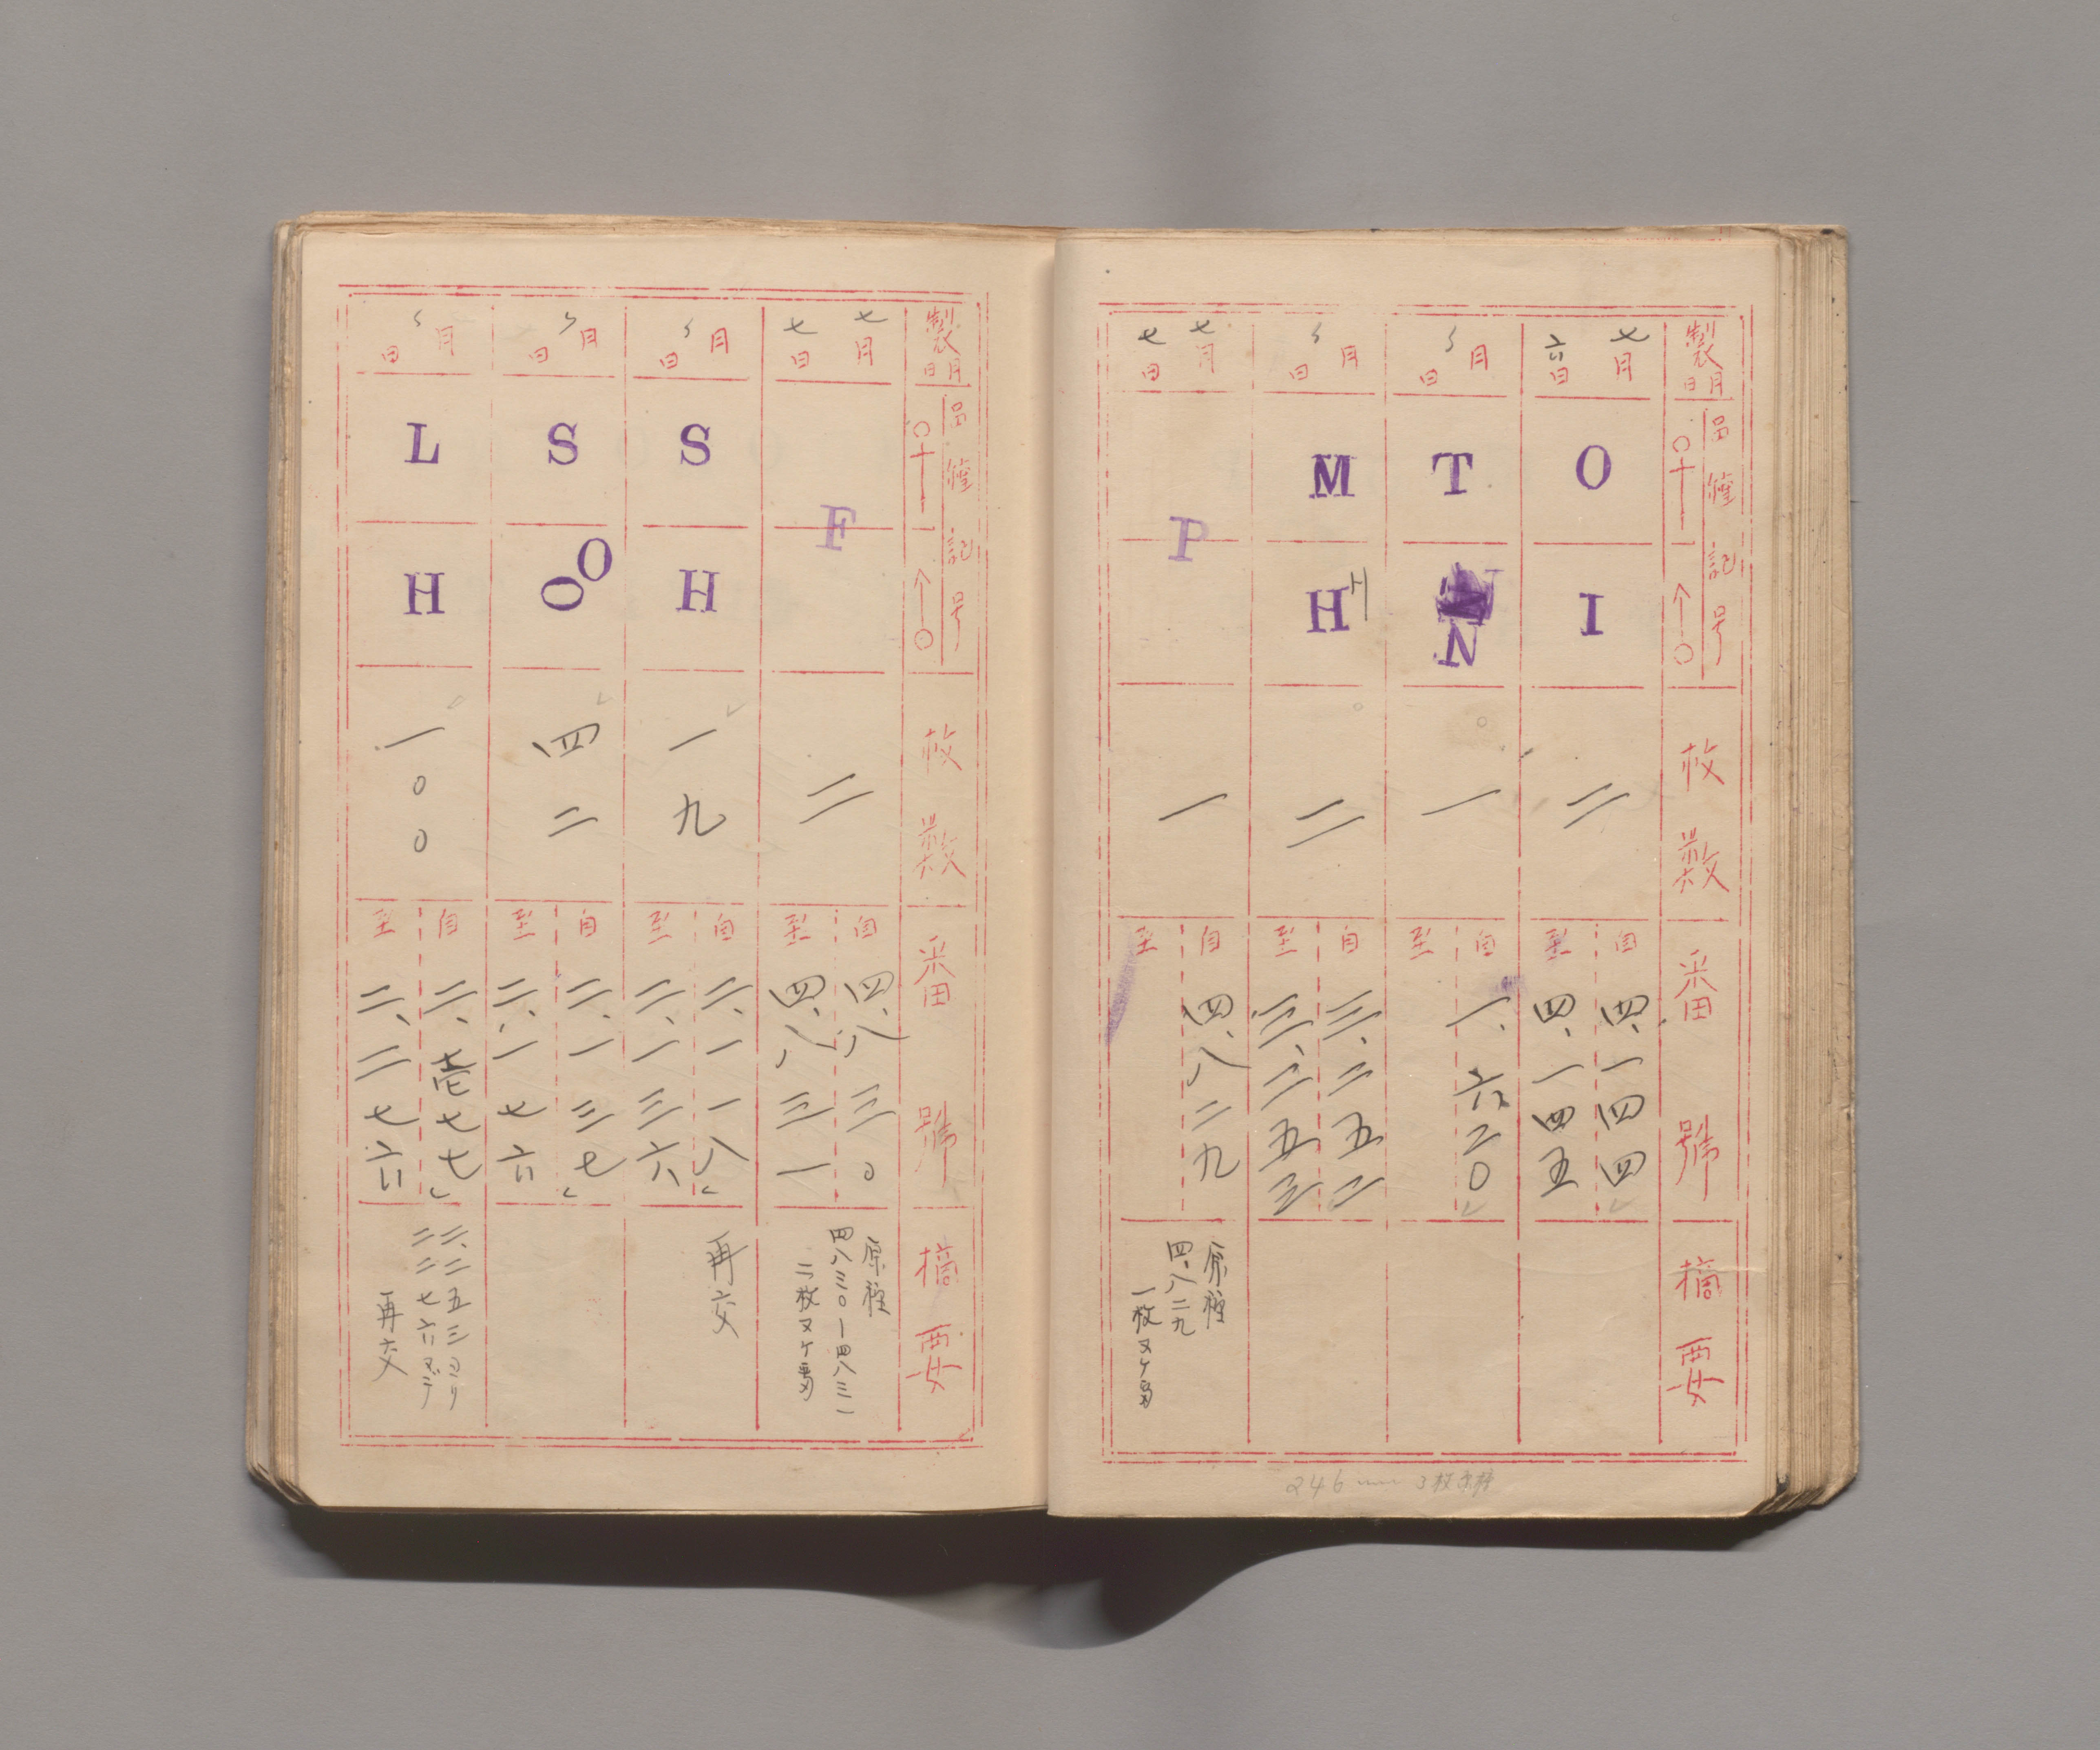 製月日
品種記号
♀
♂
枚数
番號
摘要
七月六日
O
I
二
自
四、一四四
至
四、一四五
〃月
日
T
N
一
自
一、六二〇
至
〃月
日
M
H
H
二
自
三、二五二
至
三、二五三
七月七日
P
一
自
四、八二九
至
原種
四、八二九
一枚ヌケ
246
3枚原種
製月日
品種記号
♀
♂
枚数
番號
摘要
七月七日
F
二
自
四、八三〇
至
四、八三一
原種
四八三〇ー四八三一
二枚ヌケ
〃月
日
S
H
一九
自
二、一一八
至
二、一三六
再交
〃月
日
S
O
O
四二
自
二、一三七
至
二、一七六
〃月
日
L
H
一〇〇
自
二、壱七七
至
二、二七六
二、二五三ヨリ
二二七六マデ
再交